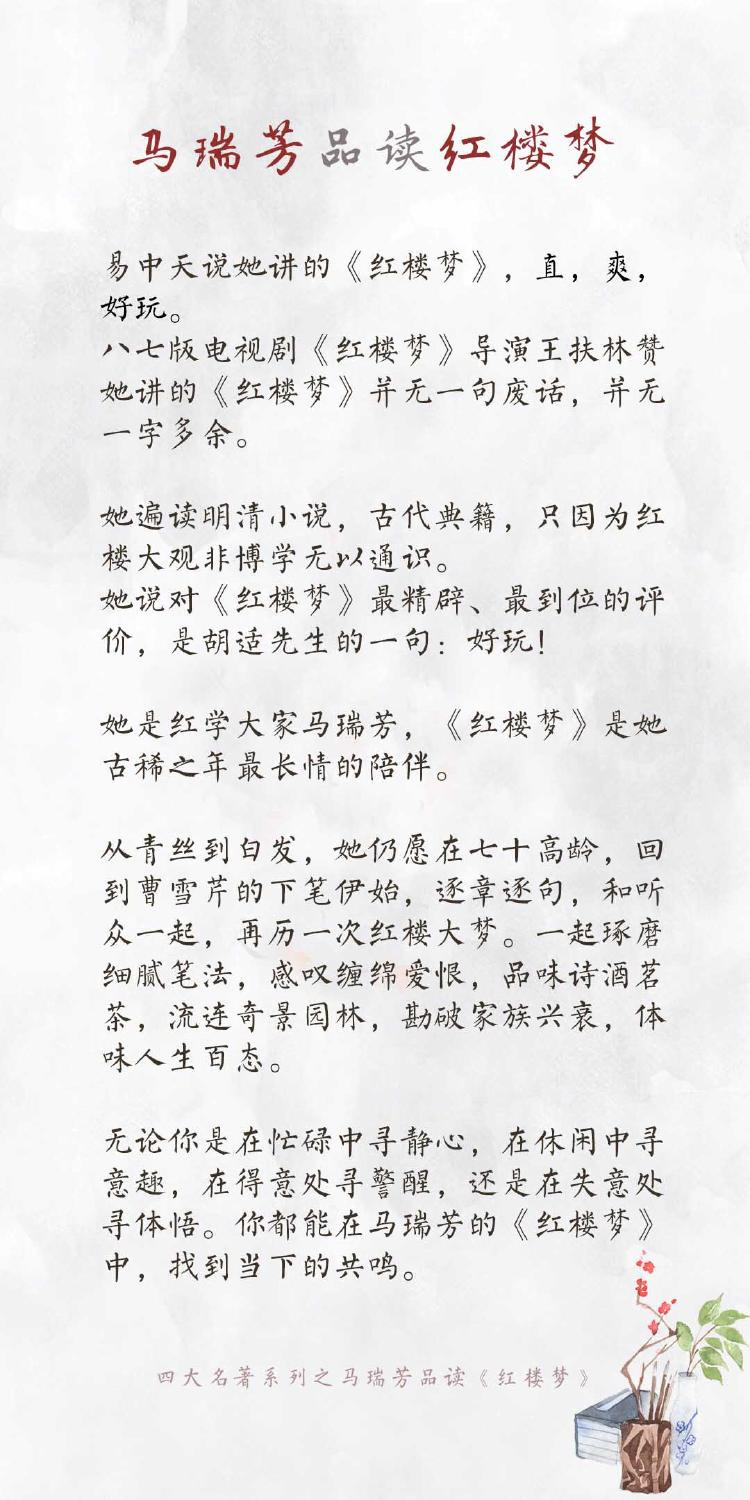 马瑞芳品读红楼梦
易中天说她讲的《红楼梦》，直，爽，
好玩。
八七版电视剧《红楼梦》导演王扶林赞
她讲的《红楼梦》并无一句废话，并无
一字多余。
她遍读明清小说，古代典籍，只因为红
楼大观非博学无以通识。
她说对《红楼梦》最精辟、最到位的评
价，是胡适先生的一句：好玩！
她是红学大家马瑞芳，《红楼梦》是她
古稀之年最长情的陪伴。
从青丝到白发，她仍愿在七十高龄，回
到曹雪芹的下笔伊始，逐章逐句，和听
众一起，再历一次红楼大梦。一起琢磨
细腻笔法，感叹缠绵爱恨，品味诗酒茗
茶，流连奇景园林，勘破家族兴衰，体
味人生百态。
无论你是在忙碌中寻静心，在休闲中寻
意趣，在得意处寻警醒，还是在失意处
寻体悟。你都能在马瑞芳的《红楼梦》
中，找到当下的共鸣。
四大名著系列之马瑞芳品读《红楼梦》